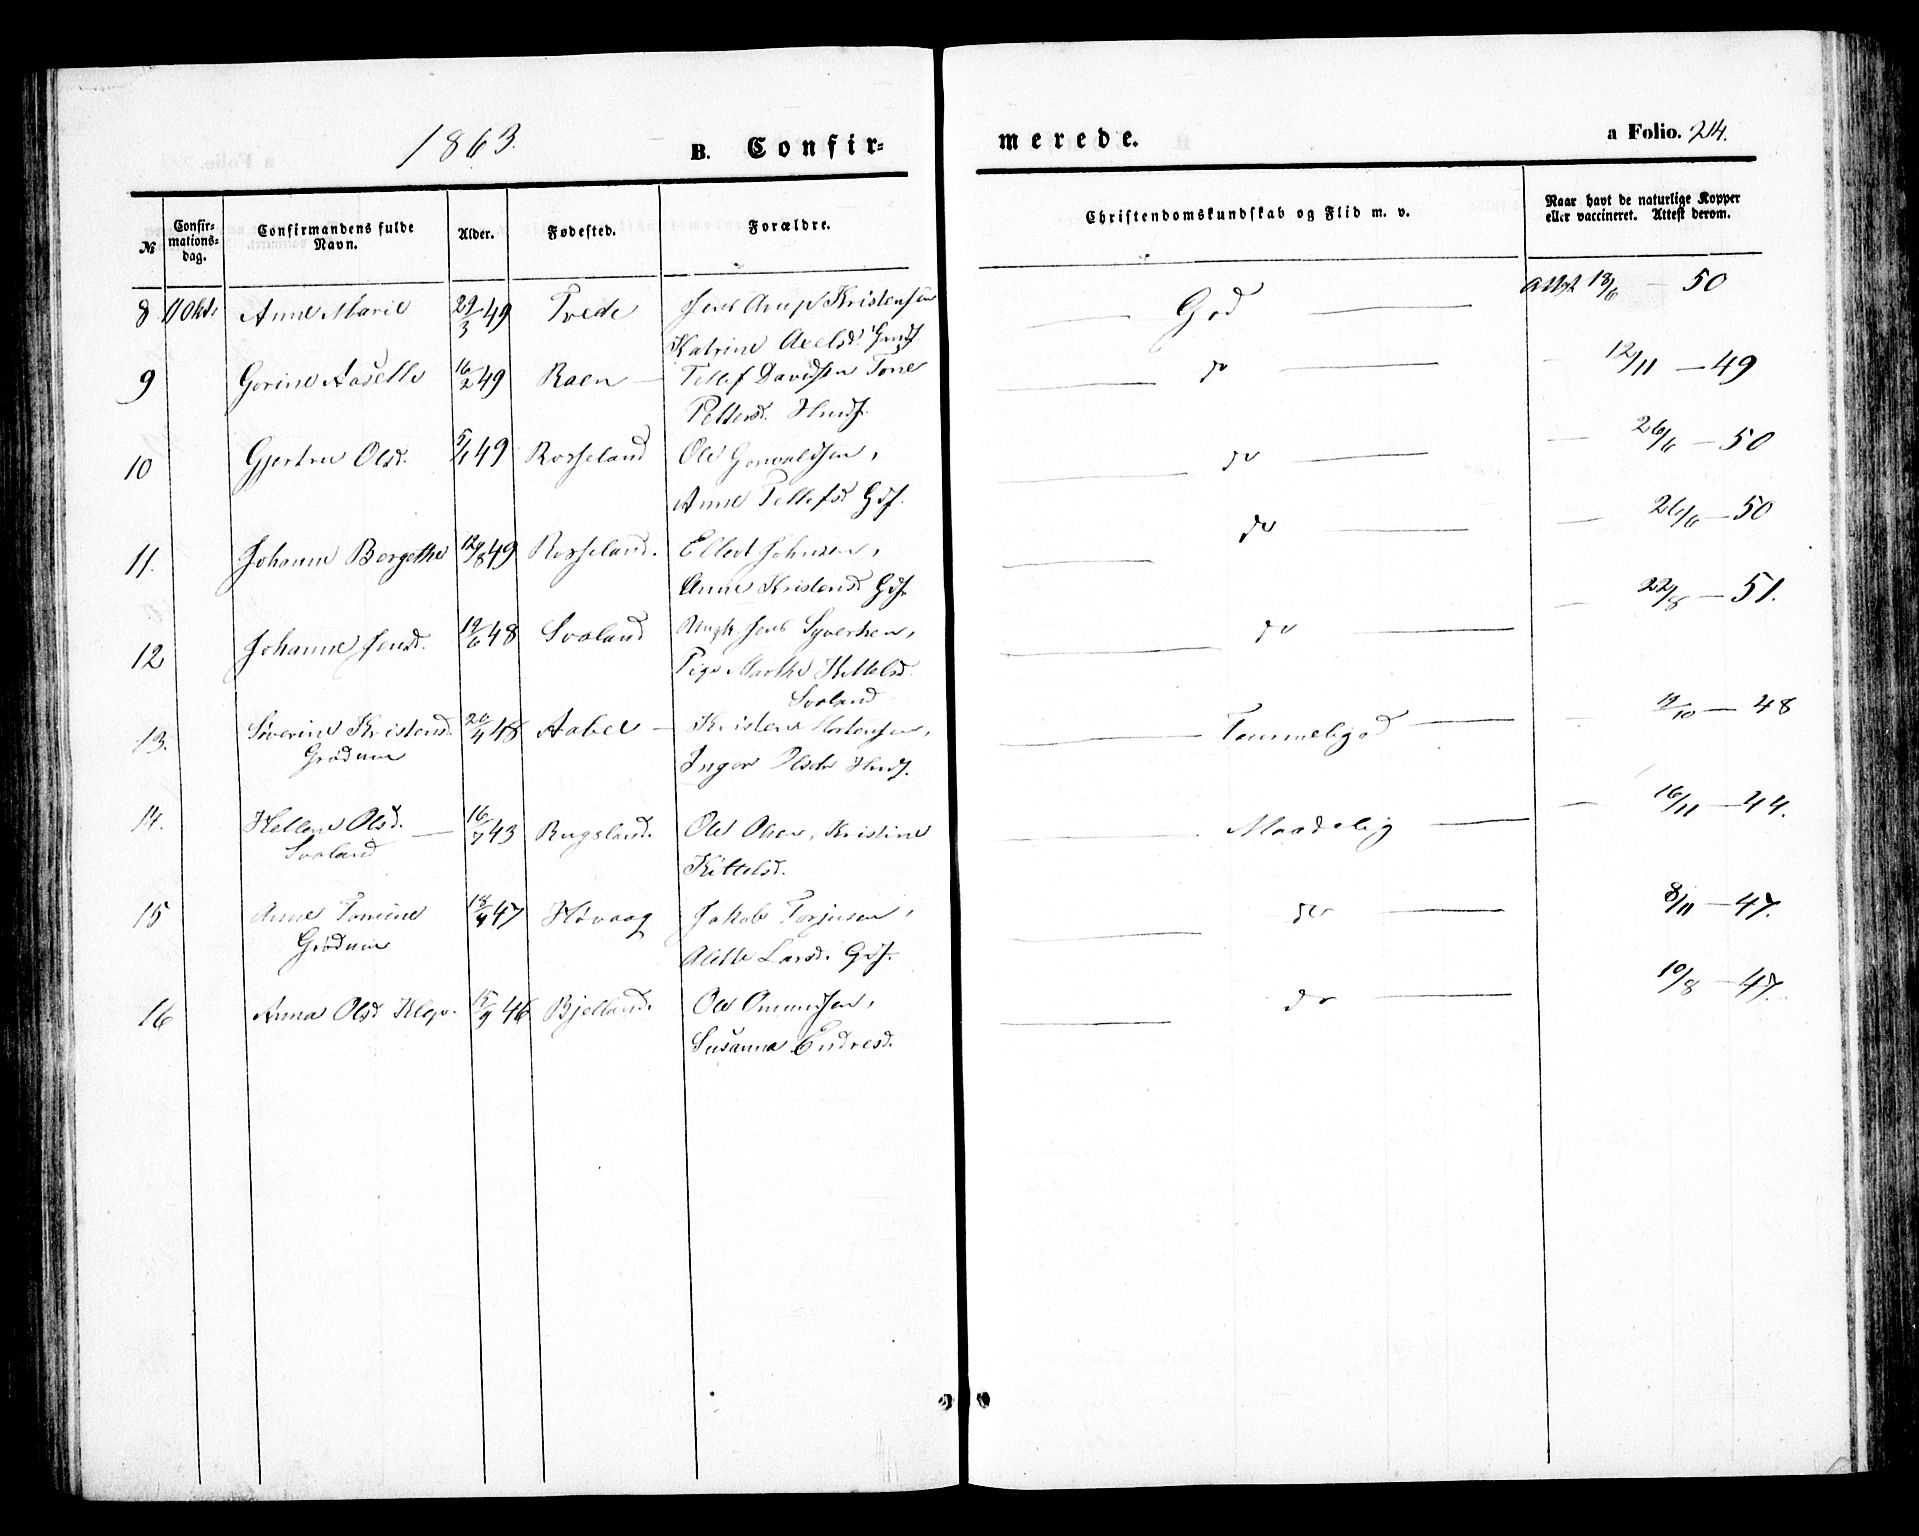 1863.
B. Confir-
merede.
a Folio. 214.
№
Confir-
mations-
dag.
Confirmandens fulde
Navn.
Alder.
Fødested.
Forældre.
Christendomskundskab og Flid m. v.
Naar havt de naturlige Kopper
eller vaccineret. Attest derom.
8 11 Okt. Anne Marie 29/3 49 Tvede Jens Kristensen
Katrine Axelsd.
God Attest 18/6 — 50
9 Gorine Aaselle 16/2 49 Raen — Tellef Davidsen Tone
Pettersd. Hmdf.
do 12/11 — 49
10 Gjertru Olsd. 5/1 49 Rosseland Ole Gonvaldsen,
Anne Tellefsd. Gdf.
do 26/6 — 50
11. Johanne Bergethe 12/8 49 Rosseland. Ellert Johnsen,
Anne Kristensd. Gdf.
do 26/6 — 50
12 Johanne Jensd. 19/6 48 Svaland Ungk. Jens Syvertsen,
Pige Marthe Kittelsd.
Svaland
do 22/8 — 51.
13. Severine Kristensd. 20/4 48 Aabel — Kristen Mortensen,
Grødum Inger Olsdr Hmdf.
Temmeliggod 11/10 — 48
14. Hellene Olsd. — 16/7 43 Rugsland. Ole Olsen, Kristine
Svaland Kittelsd.
Maadelig 16/11 — 44.
15 Anne Tomine 18/4 47 Høvaag Jakob Torjusen,
Grødum Alette Larsd. Gdf.
do 8/11 — 47.
16 Anna Olsd Klep. 15/9 46 Bjelland. Ole Omundsen,
Susanna Endresd.
do 10/8 — 47.